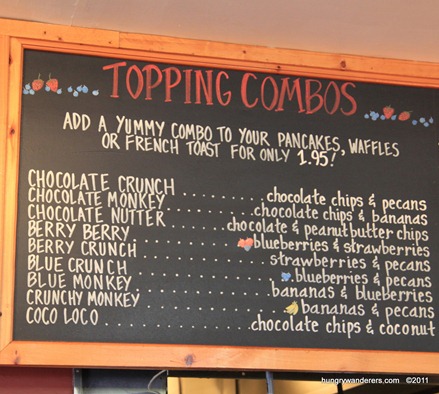 TOPPING COMBOS
ADD A YUMMY COMBO TO YOUR PANCAKES, WAFFLES
OR FRENCH TOAST FOR ONLY 1.95!
CHOCOLATE CRUNCH ........ chocolate chips & pecans
CHOCOLATE MONKEY ........ chocolate chips & bananas
CHOCOLATE NUTTER ........ chocolate & peanutbutter chips
BERRY BERRY ........ blueberries & strawberries
BERRY CRUNCH ........ strawberries & pecans
BLUE CRUNCH ........ blueberries & pecans
BLUE MONKEY ........ bananas & blueberries
CRUNCHY MONKEY ........ bananas & pecans
COCO LOCO ........ chocolate chips & coconut
hungrywanderers.com ©2011